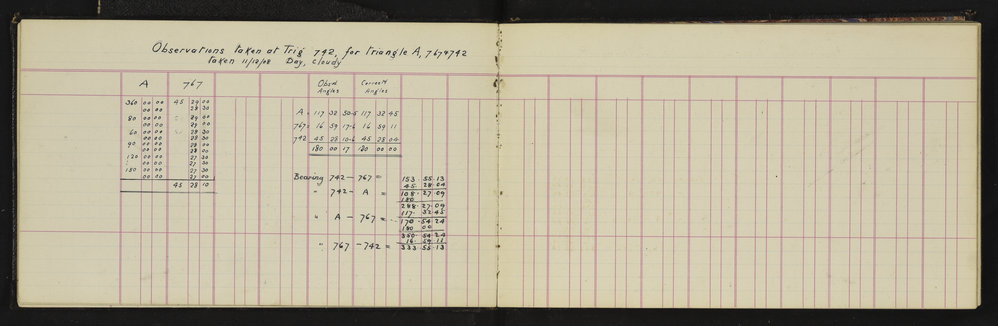 Observations taken at Trig 742, for triangle A, 767 & 742
Taken 11/12/08 Day, cloudy
A 767 Obsd Angles Correctd Angles
360 00 00 45 29 00
00 00 28 30
80 00 00 29 00
00 00 29 00
60 00 00 28 30
00 00 28 30
90 00 00 28 00
00 00 28 00
120 00 00 27 30
00 00 27 30
150 00 00 27 30
00 00 27 00
45 28 10
A = 117 32 50.5 117 32 45
767 = 16 59 17.6 16 59 11
742 45 28 10.6 45 28 04
180 00 17 180 00 00
Bearing 742 — 767 = 153. 55. 13
45. 28. 04
" 742 — A = 108. 27. 09
180
288. 27. 09
117. 32. 45
" A — 767 = 170. 54. 24
180 00
350. 54. 24
16. 59. 11
" 767 — 742 = 333 55 13